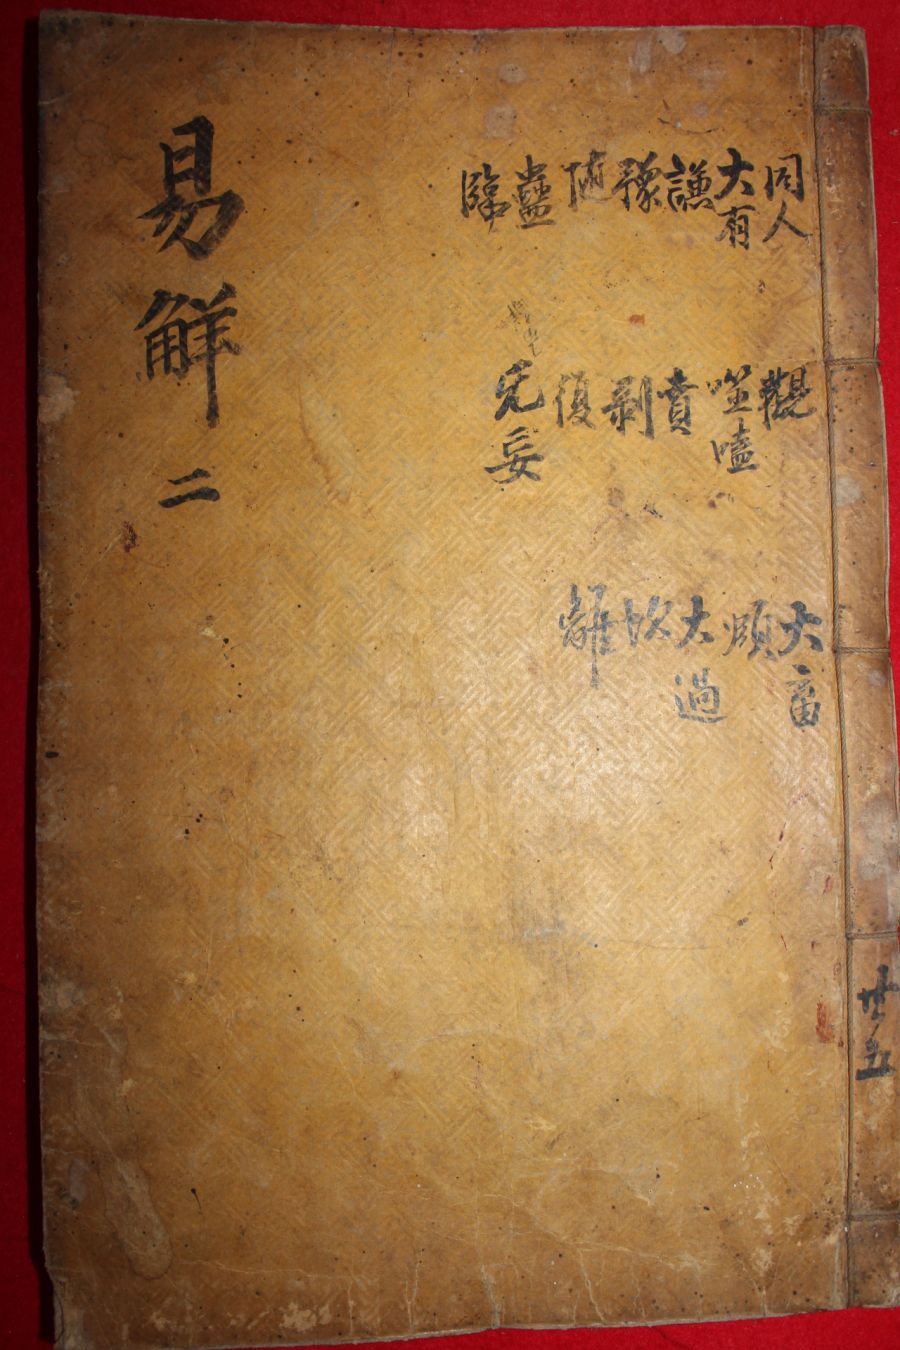 易觧二
同人
大有
謙
豫
随
蠱
臨
觀
噬嗑
賁
剥
復
无妄
大畜
頤
大過
坎
離
共五